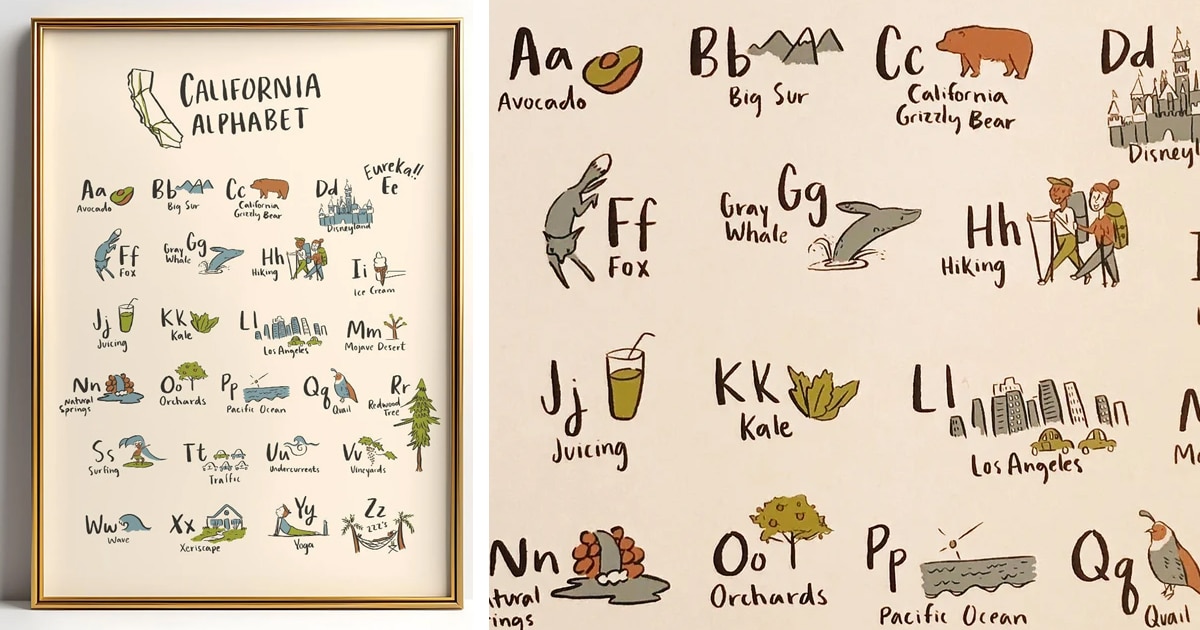 CALIFORNIA
ALPHABET
Aa
Avocado
Bb
Big Sur
Cc
California
Grizzly Bear
Dd
Disneyland
Eureka!!
Ee
Ff
Fox
Gray
Whale
Gg
Hh
Hiking
Ii
Ice Cream
Jj
Juicing
Kk
Kale
Ll
Los Angeles
Mm
Mojave Desert
Nn
Natural
Springs
Oo
Orchards
Pp
Pacific Ocean
Qq
Quail
Rr
Redwood
Tree
Ss
Surfing
Tt
Traffic
Uu
Undercurrents
Vv
Vineyards
Ww
Wave
Xx
Xeriscape
Yy
Yoga
Zz
zzz's
Aa
Avocado
Bb
Big Sur
Cc
California
Grizzly Bear
Dd
Disneyl
Ff
Fox
Gray
Whale
Gg
Hh
Hiking
Jj
Juicing
Kk
Kale
Ll
Los Angeles
Mo
Nn
tural
ings
Oo
Orchards
Pp
Pacific Ocean
Qq
Quail